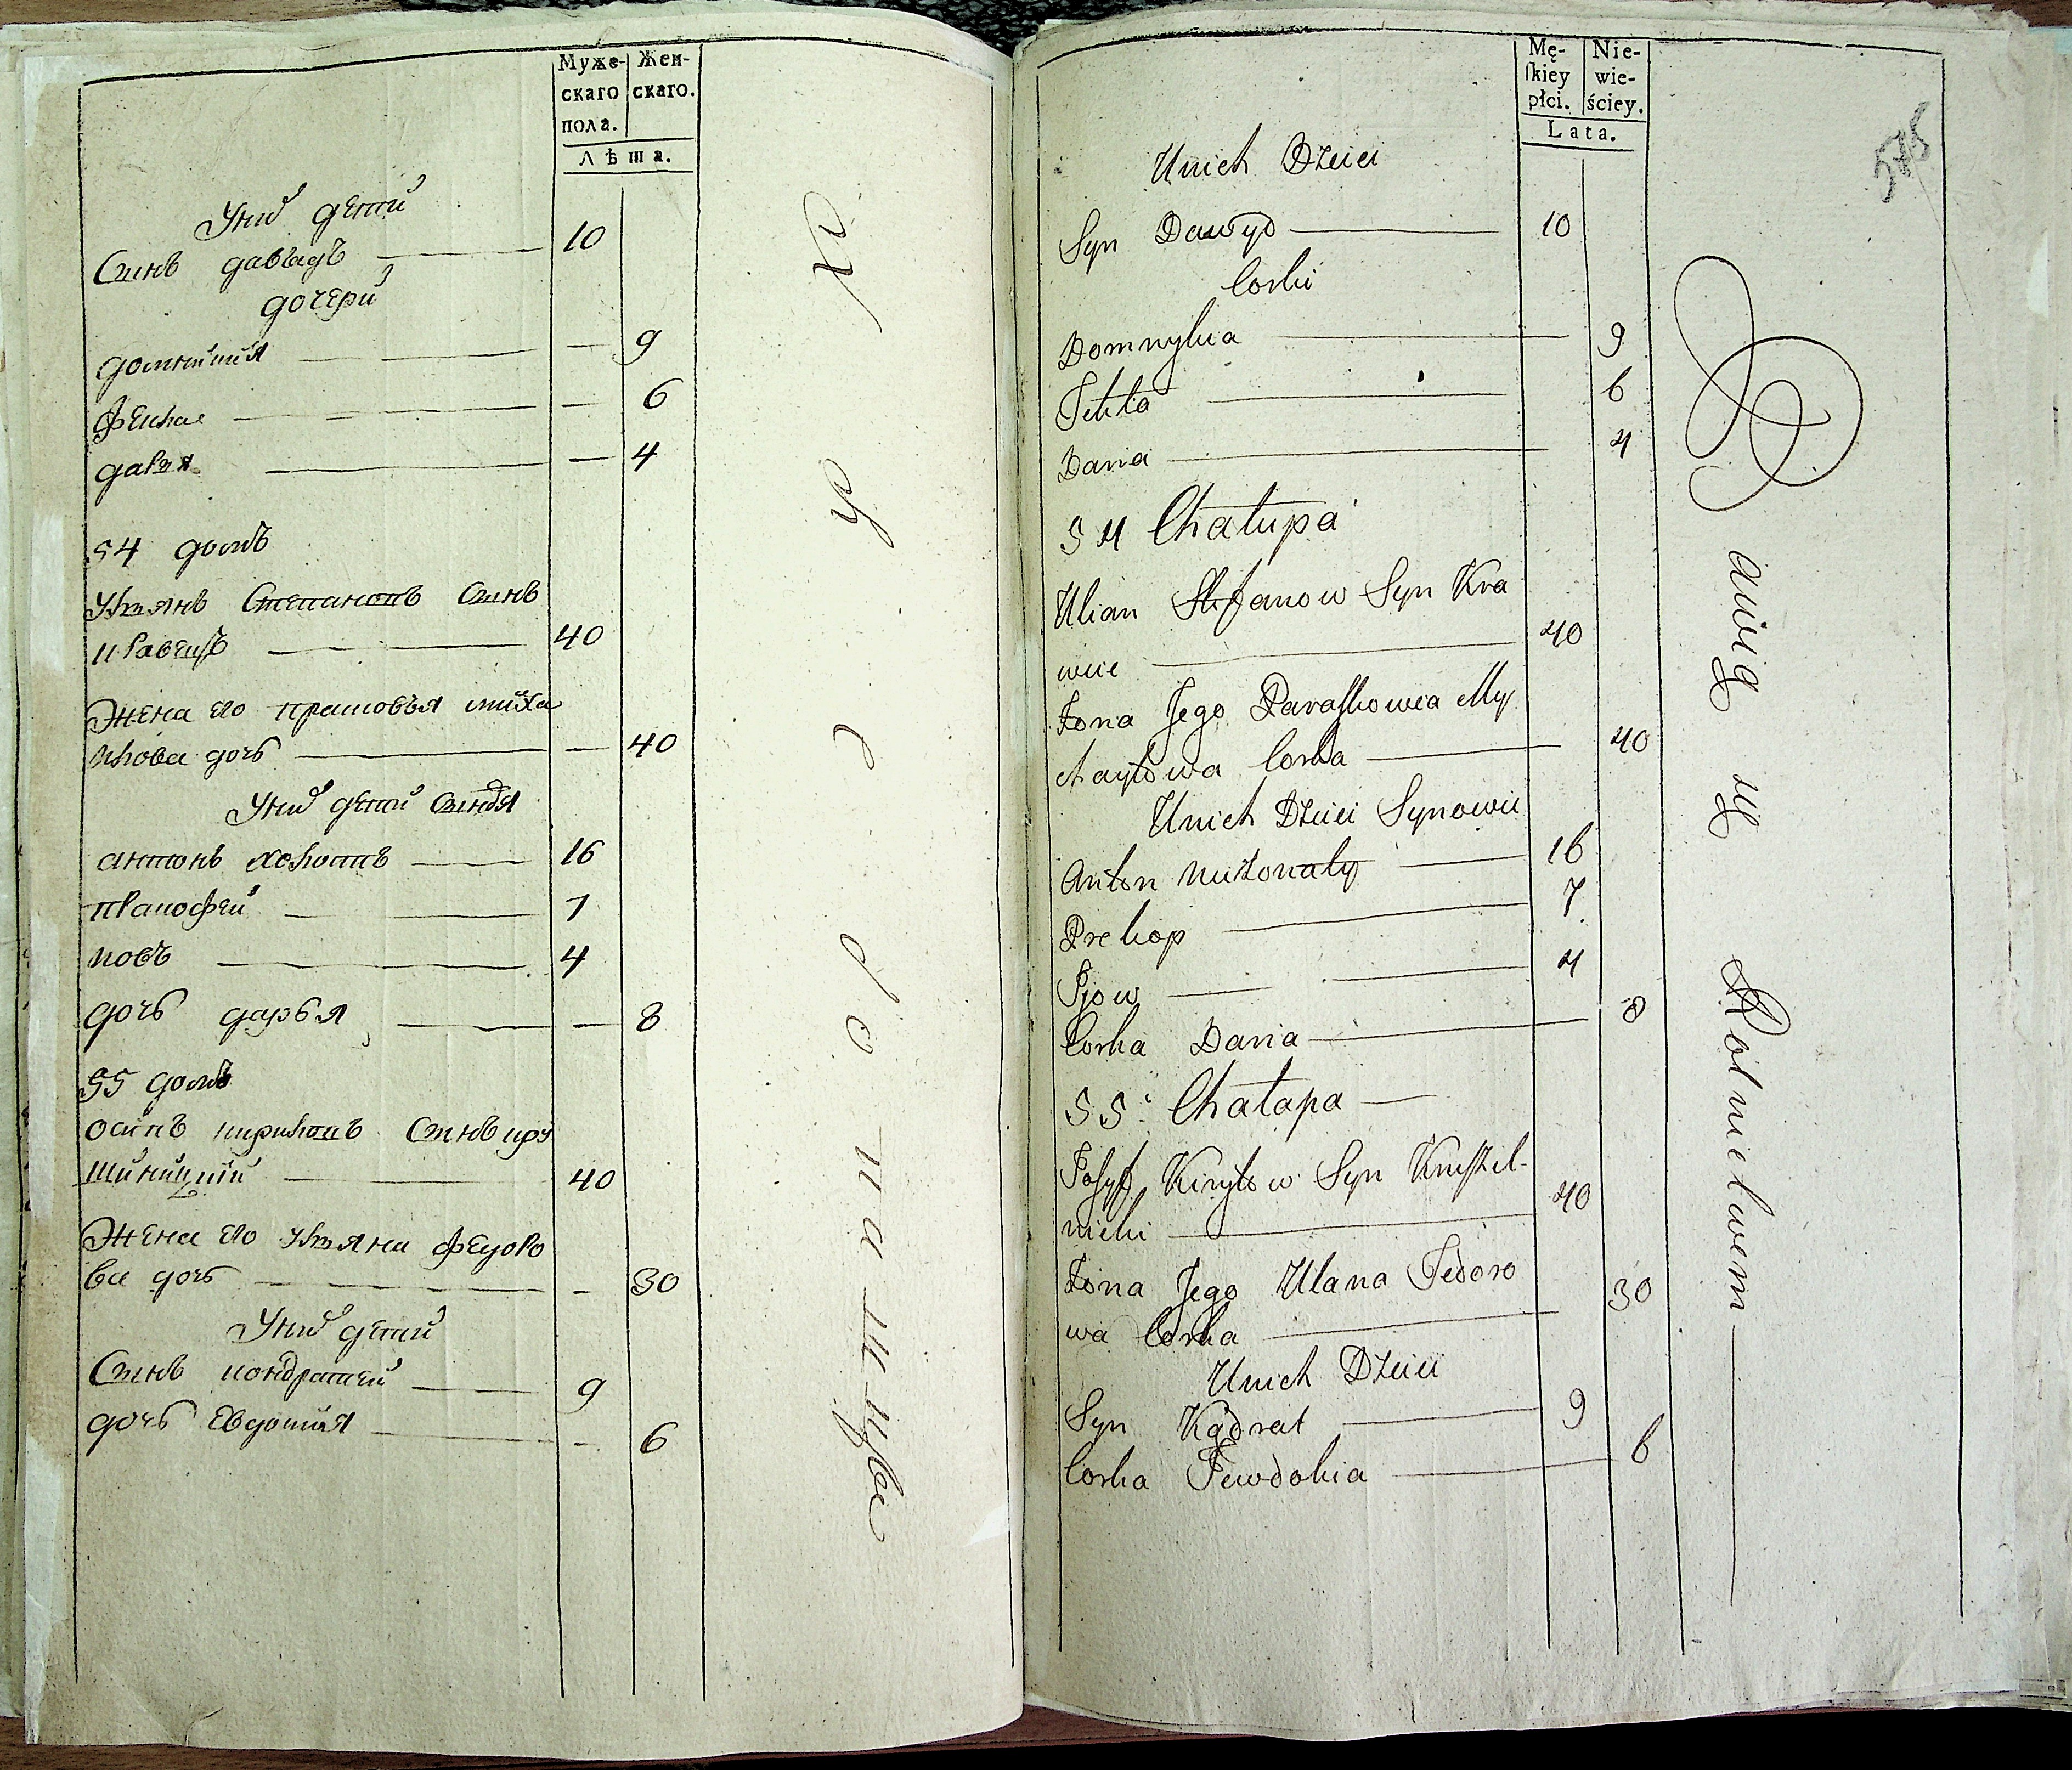 Муже-
скаго
пола.
Жен-
скаго.
лѣта.
Уних детей
Синъ давыдъ 10
дочери
домникия 9
фекла 6
даря 4
54 домъ
Улиянъ Степановъ Синъ
кравецъ 40
Жена его прасковья миха
йлова дочь 40
Уних детей Синовя
антонъ холостъ 16
прокофей 7
иовъ 4
дочь дарья 8
55 домъ
осипъ кириловъ Синъ кру
шиницкий 40
Жена его улияна федоро
ва дочь 30
Уних детей
Синъ кондратей 9
дочь Евдокия 6
Mę-
ſkiey
płci.
Nie-
wie-
ściey.
Lata.
575
Unich Dzieci
Syn Dawyd 10
Corki
Domnykia 9
Tekla 6
Daria 4
54 Chałupa
Ulian Stefanow Syn Kra
wiec 40
Żona Jego Paraſkowia My
chayłowa Corka 40
Unich Dzieci Synowie
Anton nieżonaty 16
Prokop 7
Jow 4
Corka Daria 8
55 Chałupa
Josyf Kiryłow Syn Kruszel-
nicki 40
Żona Jego Ulana Fedoro
wa Corka 30
Unich Dzieci
Syn Kądrat 9
Corka Jewdokia 6
bawią się Rolnictwem